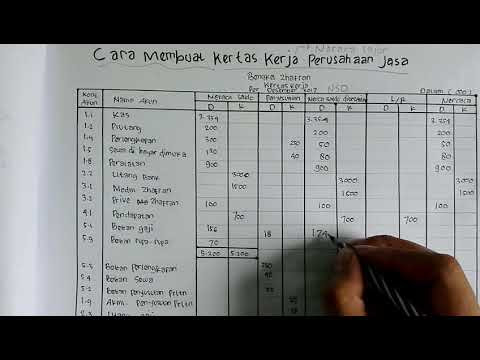 Cara Membuat Kertas Kerja Perusahaan Jasa
Bengkel Zhafran
Kertas Kerja
Per Desember 2017 NSD Dalam (000)
Kode Akun Nama Akun Neraca Saldo Penyesuaian Neraca Saldo disesuaikan L/R Neraca
D K D K D K D K D K
1.1 Kas 3.354 3.354 3.354
1.2 Piutang 200 200 200
1.4 Perlengkapan 300 250 50 50
1.5 Sewa di bayar dimuka 120 40 80 80
1.8 Peralatan 900 900 900
2.2 Utang Bank 3000 3000 3000
3.1 Modal Zhafran 1500 1500 1500
3.2 Prive Zhafran 100 100 100
4.1 Pendapatan 700 700 700
5.1 Beban gaji 156 18 174
5.9 Beban Rupa-rupa 70
5.200 5.200
5.3 Beban Perlengkapan 250
Beban Sewa 40
Beban penyusutan Prltn
1.9 Akm. Penyusutan Prltn